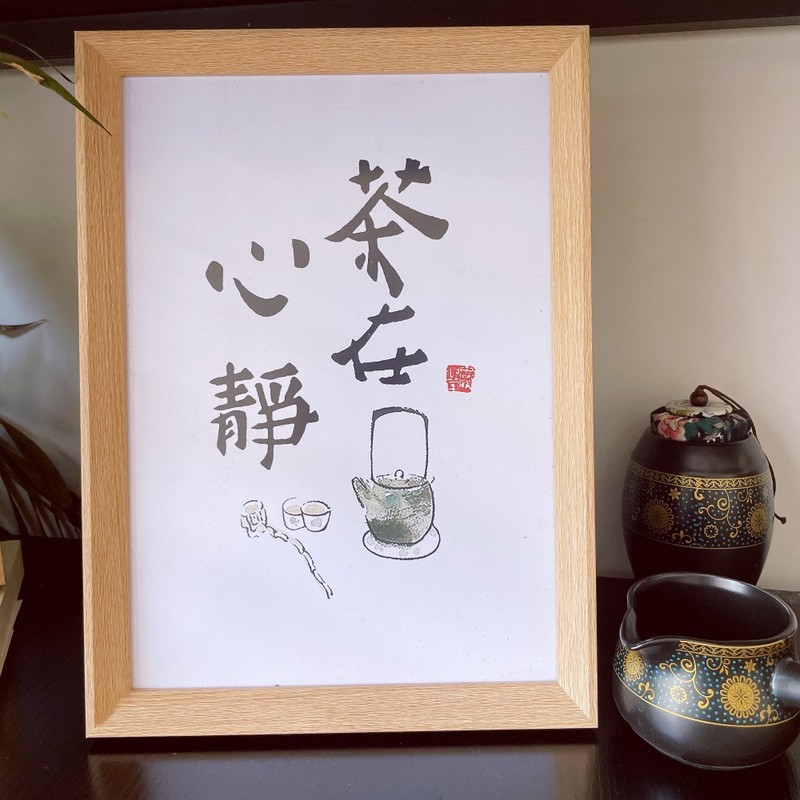 茶在
心靜